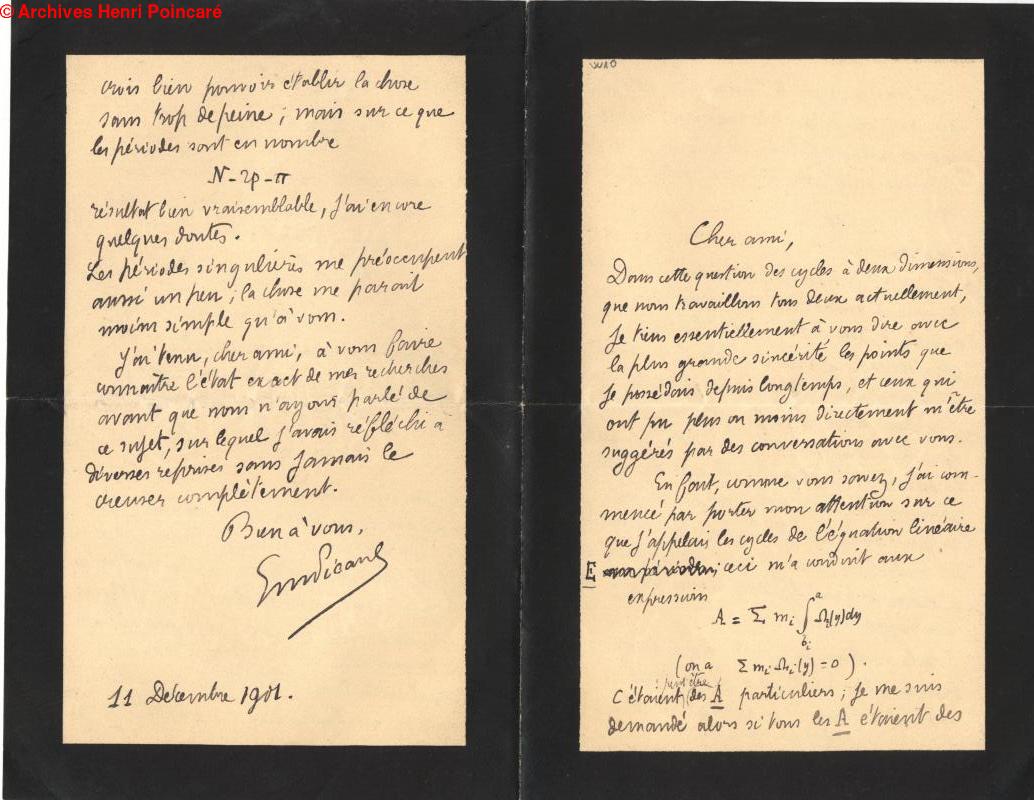 © Archives Henri Poincaré
Cher ami,
Dans cette question des cycles à deux dimensions,
que nous travaillons tous deux actuellement,
je tiens essentiellement à vous dire avec
la plus grande sincérité les points que
je possédais depuis longtemps, et ceux qui
ont pu plus ou moins directement m'être
suggérés par des conversations avec vous.
En fait, comme vous savez, j'ai com-
mencé par porter mon attention sur ce
que j'appelais les cycles de l'équation linéaire
E ; ceci m'a conduit aux
expressions
A = Σ m_i ∫_{b_i}^{a} Ω_i(y)dy
(on a Σ m_i Ω_i(y) = 0).
peut être
C'étaient des A particuliers ; je me suis
demandé alors si tous les A étaient des
crois bien pouvoir établir la chose
sans trop de peine ; mais sur ce que
les périodes sont en nombre
N - 2p - π
résultat bien vraisemblable, j'ai encore
quelques doutes.
Les périodes singulières me préoccupent
aussi un peu ; la chose me paraît
moins simple qu'à vous.
J'ai tenu, cher ami, à vous faire
connaître l'état exact de mes recherches
avant que nous n'ayons parlé de
ce sujet, sur lequel j'avais réfléchi à
diverses reprises sans jamais le
creuser complètement.
Bien à vous,
Emile Picard
11 Décembre 1901.